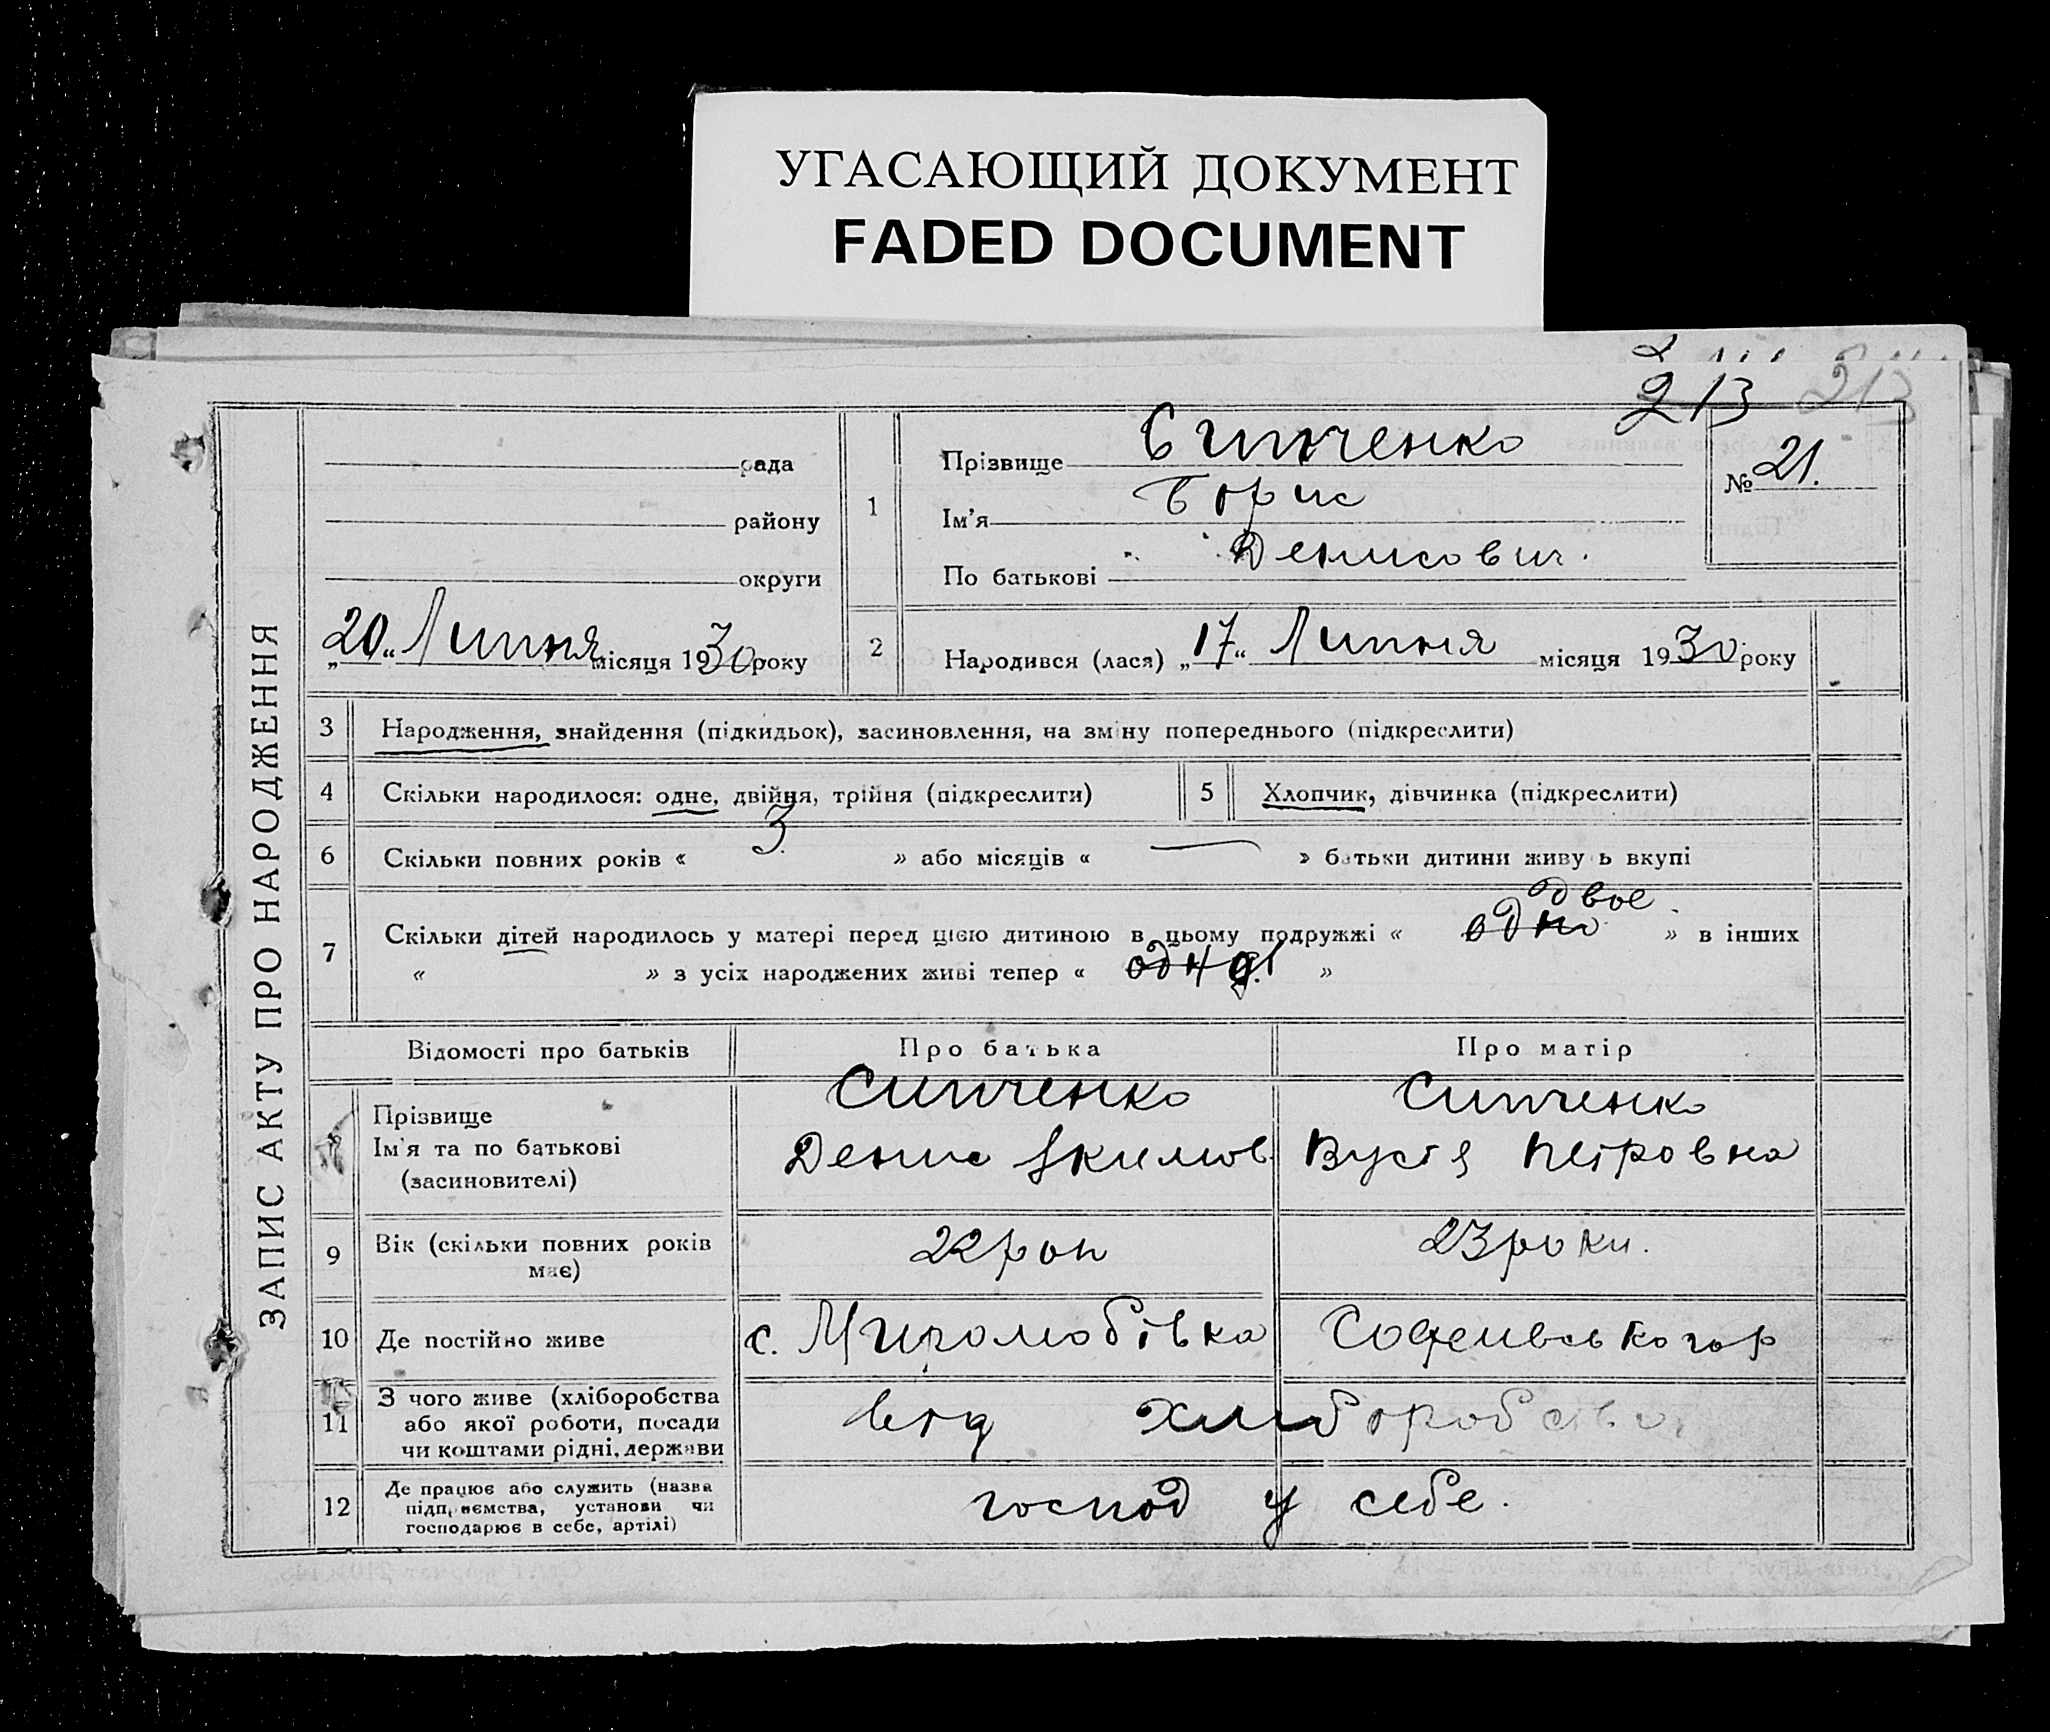 УГАСАЮЩИЙ ДОКУМЕНТ
FADED DOCUMENT
213 213
ЗАПИС АКТУ ПРО НАРОДЖЕННЯ
рада
району
округи
„20“ Липня місяця 1930 року
1
Прізвище Сипченко
Ім'я Борис
По батькові Денисович.
№ 21.
2 Народився (лася) „17“ Липня місяця 1930 року
3 Народження, знайдення (підкидьок), засиновлення, на зміну попереднього (підкреслити)
4 Скільки народилося: одне, двійня, трійня (підкреслити) 5 Хлопчик, дівчинка (підкреслити)
6 Скільки повних років « 3 » або місяців « — » батьки дитини живуть вкупі
двое
7 Скільки дітей народилось у матері перед цією дитиною в цьому подружжі « одно » в інших
« » з усіх народжених живі тепер « »
Відомості про батьків Про батька Про матір
Прізвище Сипченко Сипченко
Ім'я та по батькові Денис Якимов Вустя Петровна
(засиновителі)
9 Вік (скільки повних років має) 22 рок 23 роки.
10 Де постійно живе с. Миролюбівка Софеивського р
11 З чого живе (хліборобства
або якої роботи, посади
чи коштами рідні, держави
від хліборобства
12 Де працює або служить (назва
підприємства, установи чи
господарює в себе, артілі)
господ у себе.